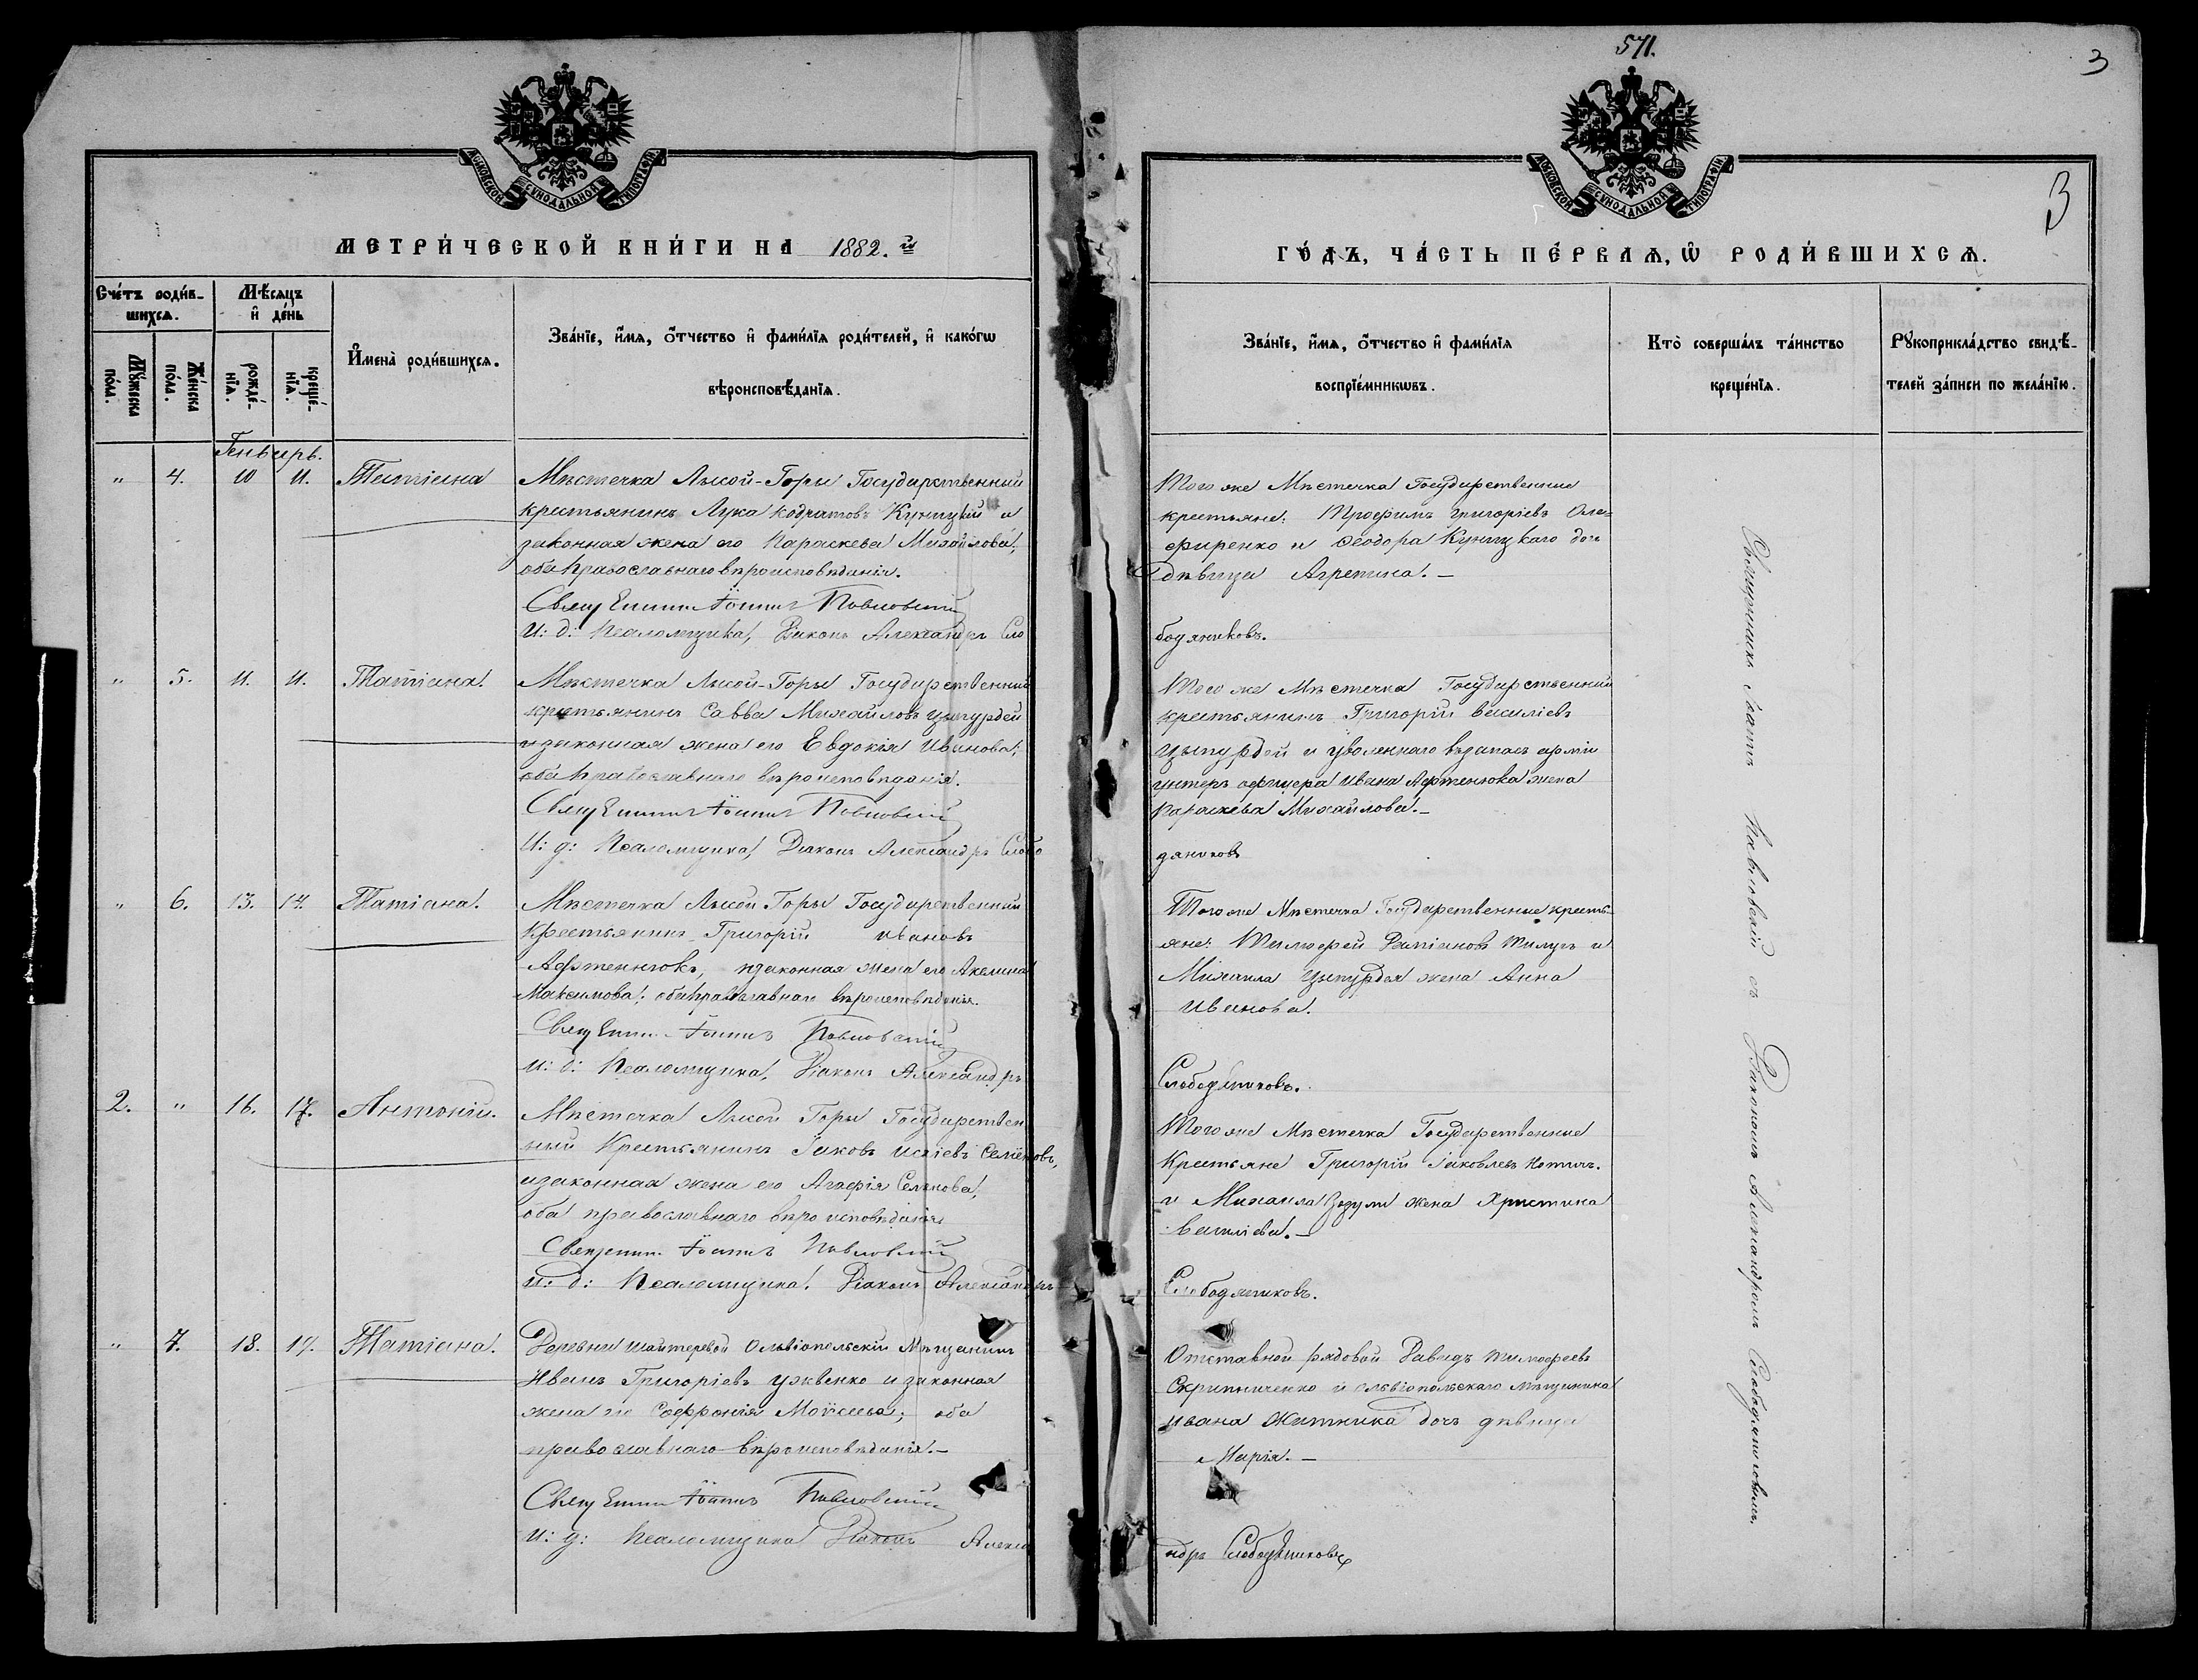 571.
3
3
МОСКОВСКОЙ СѴНОДАЛЬНОЙ ТИПОГРАФІИ
МОСКОВСКОЙ СѴНОДАЛЬНОЙ ТИПОГРАФІИ
МЕТРИ́ЧЕСКОЙ КНИ́ГИ НА 1882.й
ГО́ДЪ, ЧА́СТЬ ПЕ́РВАѦ, Ѡ РОДИ́ВШИХСѦ.
Сче́тъ роди́в-
шихсѧ.
Мꙋ́жеска
по́ла.
Же́нска
по́ла.
Мѣ́сѧцъ
и҆ де́нь
рожде́-
нїѧ.
креще́-
нїѧ.
И҆мена̀ роди́вшихсѧ.
Зва́нїе, и҆́мѧ, ѻ҆́тчество и҆ фами́лїѧ роди́телей, и҆ како́гѡ
вѣроисповѣ́данїѧ.
Зва́нїе, и҆́мѧ, ѻ҆́тчество и҆ фами́лїѧ
воспрїе́мникѡвъ.
Кто̀ соверша́лъ та́инство
креще́нїѧ.
Рꙋкоприкла́дство свидѣ́-
телей за́писи по жела́нїю.
Генварь.
" 4. 10 11. Татіана
Мѣстечка Лысой-Горы Государственный
крестьянинъ Лука Кодратовъ Куницкій и
законная жена его Параскева Михайлова;
оба Православнаго вѣроисповѣданія.
Священникъ Іоаннъ Павловскій
И: д: Псаломщика, Діаконъ Александръ Сло
Того же Мѣстечка Государственные
крестьяне: Трофимъ Григоріевъ Оле=
фиренко и Ѳеодора Куницкаго дочь
дѣвица Агрепина.–
бодяниковъ.
" 5. 11. 11. Татіана.
Мѣстечка Лысой-Горы Государственный
крестьянинъ Савва Михайловъ Цыпурдей
и законная жена его Евдокія Иванова;
оба Православнаго вѣроисповѣданія.
Священникъ Іоаннъ Павловскій
И: д: Псаломщика, Діаконъ Александръ Слобо
Того же Мѣстечка Государственный
крестьянинъ Григорій Василіевъ
Цыпурдей и уволеннаго взапасъ арміи
унтеръ офицера Ивана Афтенюка жена
Параскева Михайлова.–
дяниковъ
" 6. 13. 14. Татіана.
Мѣстечка Лысой Горы Государственный
Крестьянинъ Григорій Ивановъ
Афтенюкъ, изаконная жена его Акелина
Максимова; оба православнаго вѣроисповѣданія.
Священникъ Іоаннъ Павловскій
И: д: Псаломщика, Діаконъ Александръ
Того же Мѣстечка Государственные кресть-
яне: Тимофей и
Михаила Цыпурдея жена Анна
Иванова.
Слободяниковъ.
2. " 16. 17. Антоній.
Мѣстечка Лысой Горы Государствен
ный Крестьянинъ Іаковъ
изаконная жена его Агафія Семенова,
оба православнаго вѣроисповѣданія
Священникъ Іоаннъ Павловскій
И: д: Псаломщика, Діаконъ Александръ
Того же Мѣстечка Государственные
Крестьяне Григорій Іаковлевъ
и Михаила жена Христина
Василіева.–
Слободяниковъ.
" 7. 18. 19. Татіана.
Деревни Ольвіопольскій Мѣщанинъ
Иванъ Григоріевъ Ужвенко и законная
жена его Софронія Моисеева; оба
православнаго вѣроисповѣданія.–
Священникъ Іоаннъ Павловскій
И: д: Псаломщика Діаконъ Алекса
Отставной рядовой Давидъ Тимофеевъ
Скрипниченко и Ольвіопольскаго Мѣщанина
Ивана Житника дочь дѣвица
Марія.–
ндръ Слободяниковъ
Священникъ Іоаннъ Павловскій съ Діакономъ Александромъ Слободяниковымъ.